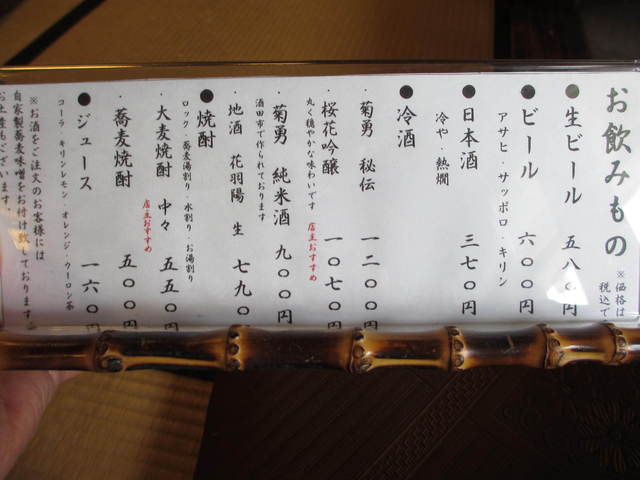 お飲みもの
※価格は
税込で
●生ビール 五八〇円
●ビール 六〇〇円
アサヒ・サッポロ・キリン
●日本酒 三七〇円
冷や・熱燗
●冷酒
・菊勇 秘伝 一二〇〇円
・桜花吟醸 一〇七〇円
丸く穏やかな味わいです 店主おすすめ
・菊勇 純米酒 九〇〇円
酒田市で作られております
・地酒 花羽陽 生 七九〇
●焼酎
ロック・蕎麦湯割り・水割り・お湯割り
・大麦焼酎 中々 五五〇円
店主おすすめ
・蕎麦焼酎 五〇〇円
●ジュース 一六〇円
コーラ・キリンレモン・オレンジ・ウーロン茶
※お酒をご注文のお客様には
自家製蕎麦味噌をお付け致しております。
お土産もございます。